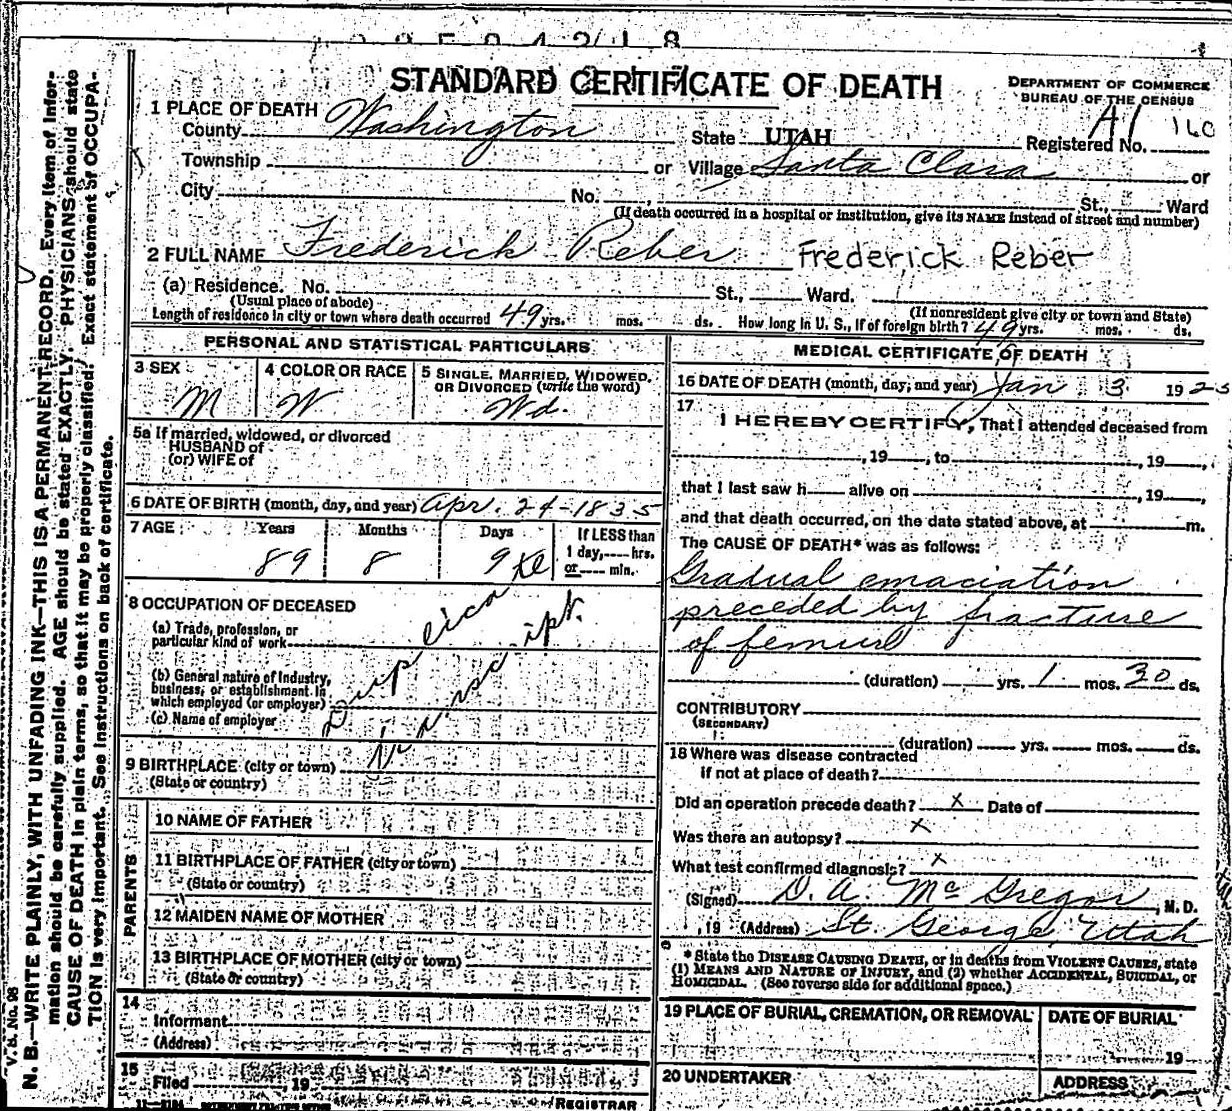 STANDARD CERTIFICATE OF DEATH
DEPARTMENT OF COMMERCE
BUREAU OF THE CENSUS
1 PLACE OF DEATH
County Washington State UTAH Registered No. A1 160
Township or Village Santa Clara or
City No. St., Ward
(If death occurred in a hospital or institution, give its NAME instead of street and number)
2 FULL NAME Frederick Reber Frederick Reber
(a) Residence. No. St., Ward.
(Usual place of abode) (If nonresident give city or town and State)
Length of residence in city or town where death occurred 49 yrs. mos. ds. How long in U. S., if of foreign birth? 49 yrs. mos. ds.
PERSONAL AND STATISTICAL PARTICULARS
3 SEX
M
4 COLOR OR RACE
W
5 SINGLE, MARRIED, WIDOWED, OR DIVORCED (write the word)
Wd.
5a If married, widowed, or divorced
HUSBAND of
(or) WIFE of
6 DATE OF BIRTH (month, day, and year) Apr. 24-1835
7 AGE Years Months Days If LESS than
89 8 9 1 day, hrs.
or min.
8 OCCUPATION OF DECEASED
(a) Trade, profession, or
particular kind of work
(b) General nature of Industry,
business, or establishment in
which employed (or employer)
(c) Name of employer
9 BIRTHPLACE (city or town)
(State or country)
PARENTS
10 NAME OF FATHER
11 BIRTHPLACE OF FATHER (city or town)
(State or country)
12 MAIDEN NAME OF MOTHER
13 BIRTHPLACE OF MOTHER (city or town)
(State or country)
14
Informant
(Address)
15
Filed 19
REGISTRAR
MEDICAL CERTIFICATE OF DEATH
16 DATE OF DEATH (month, day, and year) Jan 3 1925
17
I HEREBY CERTIFY, That I attended deceased from
, 19 , to , 19 ,
that I last saw h alive on , 19 ,
and that death occurred, on the date stated above, at m.
The CAUSE OF DEATH* was as follows:
Gradual emaciation
preceded by fracture
of femur
(duration) yrs. 1 mos. 30 ds.
CONTRIBUTORY
(SECONDARY)
(duration) yrs. mos. ds.
18 Where was disease contracted
if not at place of death?
Did an operation precede death? x Date of
Was there an autopsy? x
What test confirmed diagnosis? x
(Signed) D. A. McGregor, M.D.
, 19 (Address) St. George, Utah
* State the DISEASE CAUSING DEATH, or in deaths from VIOLENT CAUSES, state
(1) MEANS AND NATURE OF INJURY, and (2) whether ACCIDENTAL, SUICIDAL, or
HOMICIDAL. (See reverse side for additional space.)
19 PLACE OF BURIAL, CREMATION, OR REMOVAL
DATE OF BURIAL
19
20 UNDERTAKER
ADDRESS
V. S. No. 98
N. B.—WRITE PLAINLY, WITH UNFADING INK—THIS IS A PERMANENT RECORD. Every item of infor-
mation should be carefully supplied. AGE should be stated EXACTLY. PHYSICIANS should state
CAUSE OF DEATH in plain terms, so that it may be properly classified. Exact statement of OCCUPA-
TION is very important. See instructions on back of certificate.